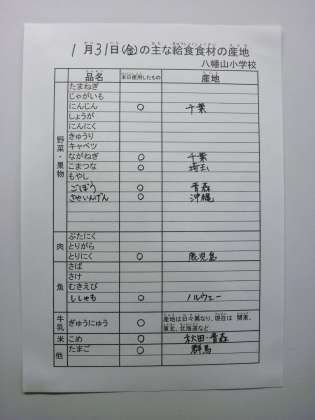 1月31日(金)の主な給食食材の産地
八幡山小学校
品名 本日使用したもの 産地
野菜・果物
たまねぎ
じゃがいも
にんじん ○ 千葉
しょうが
にんにく
きゅうり
キャベツ
ながねぎ ○ 千葉
こまつな ○ 埼玉
もやし
ごぼう ○ 青森
さやいんげん ○ 沖縄
肉
ぶたにく
とりがら
とりにく ○ 鹿児島
魚
さば
さけ
むきえび
ししゃも ○ ノルウェー
牛乳 ぎゅうにゅう ○ 産地は日々異なり、現在は 関東、
東北、北海道など
米 こめ ○ 秋田・青森
他 たまご ○ 群馬